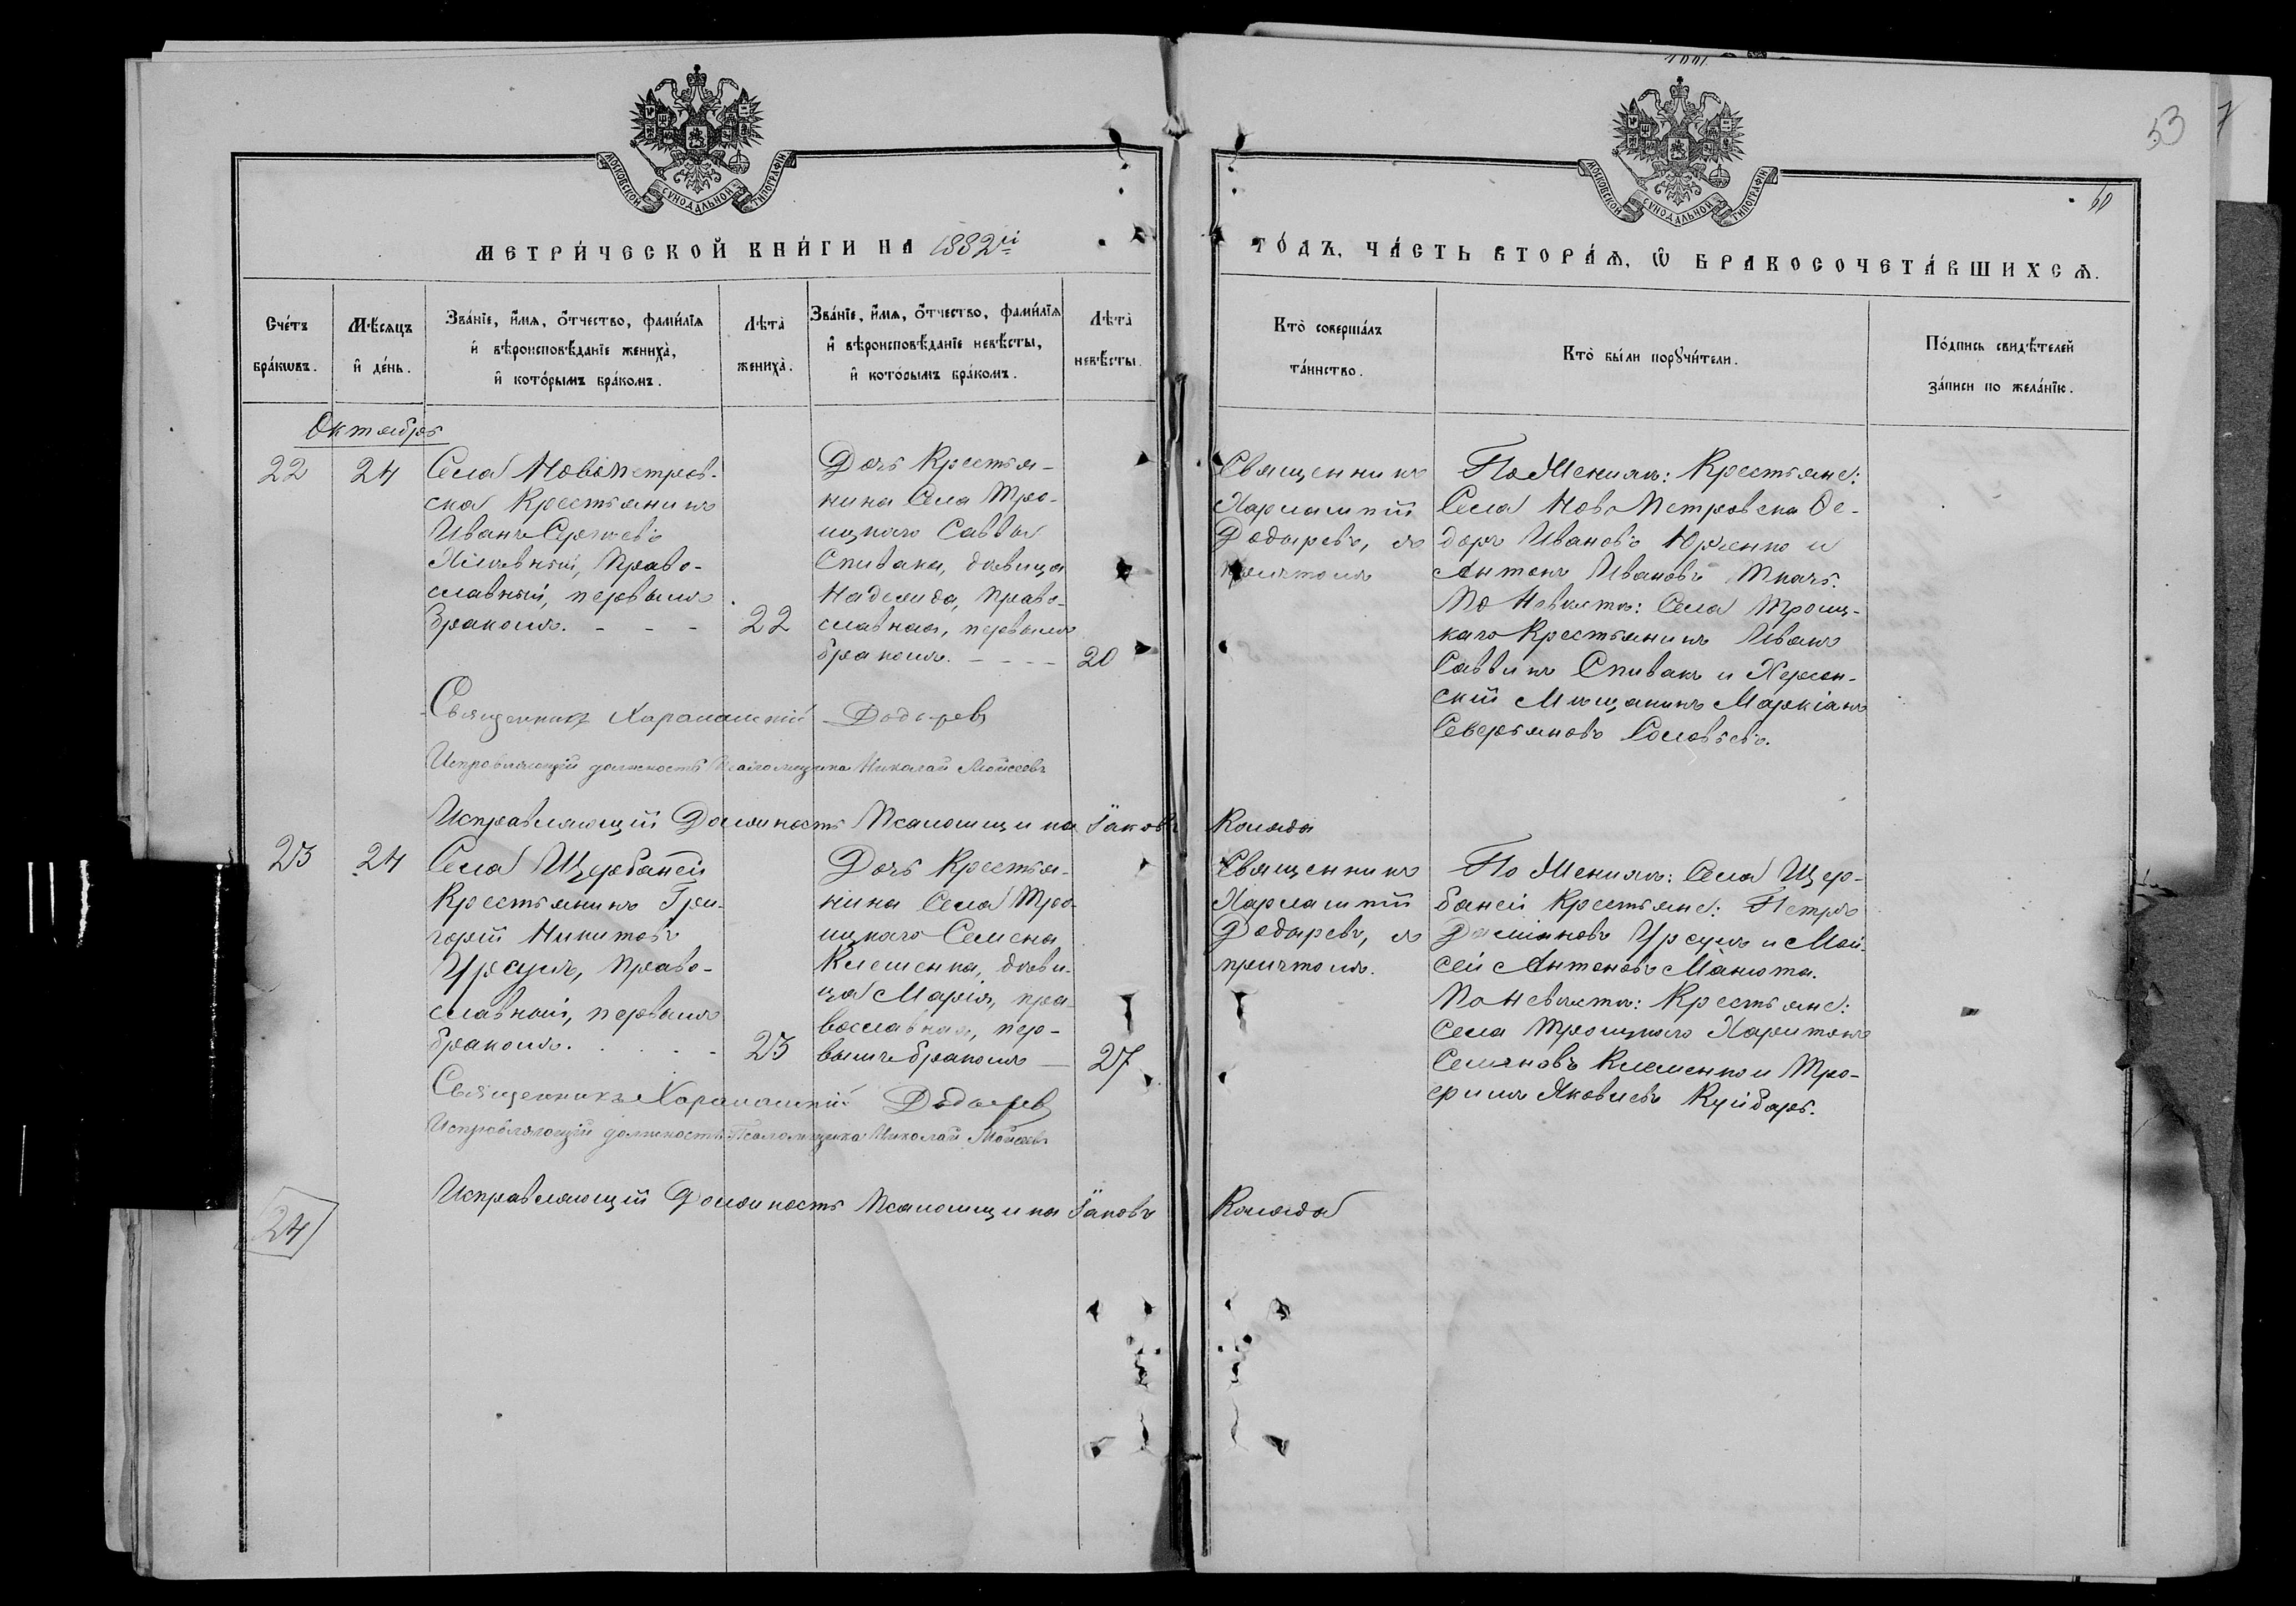 53
60
МОСКОВСКОЙ СѴНОДАЛЬНОЙ ТИПОГРАФІИ
МОСКОВСКОЙ СѴНОДАЛЬНОЙ ТИПОГРАФІИ
МЕТРИ́ЧЕСКОЙ КНИ́ГИ НА 1882й
ГО́ДЪ, ЧА́СТЬ ВТОРА́Ѧ, Ѽ БРАКОСОЧЕТА́ВШИХСѦ.
Сче́тъ
бра́кѡвъ.
Мѣ́сѧцъ
и҆ де́нь.
Зва́нїе, и҆́мѧ, о҆́тчество, фами́лїѧ
и҆ вѣроисповѣ́данїе жениха̀,
и҆ кото́рымъ бра́комъ.
Лѣта̀
жениха̀.
Зва́нїе, и҆́мѧ, о҆́тчество, фами́лїѧ
и҆ вѣроисповѣ́данїе невѣ́сты,
и҆ кото́рымъ бра́комъ.
Лѣта̀
невѣ́сты.
Кто̀ соверша́лъ
та́инство.
Кто̀ бы́ли порꙋчи́тели.
По́дпись свидѣ́телей
за́писи по жела́нїю.
Октября
22
24
Села Новопетров-
ска Крестьянинъ
Иванъ Сергѣевъ
православный, первымъ
бракомъ. - - -
22
Дочь Крестья-
нина Села Тро-
ицкаго Саввы
Спивака, дѣвица
Надежда, право-
славная, первымъ
бракомъ. - - - -
20
Священникъ
Харлампій
Додыревъ, съ
причтомъ
По Женихѣ: Крестьяне:
Села Ново Петровска Ѳе-
доръ Ивановъ Юрченко и
Антонъ Ивановъ Ткачъ.
По Невѣстѣ: Села Троиц-
каго Крестьянинъ Иванъ
Саввинъ Спивакъ и Херсон-
скій Мѣщанинъ Маркіанъ
Северьяновъ Соловьевъ.
Священникъ Харалампій Додыревъ
Исправляющій должность Псаломщика Николай Мойсеевъ
Исправляющій Должность Псаломщика Іаковъ Коляда
23
24
Села Щербаней
Крестьянинъ Гри-
горій Никитовъ
Урсулъ, Право-
славный, первымъ
бракомъ. . . - -
23
Дочь Крестья-
нина Села Тро-
ицкаго Семена
Клеменка, дѣви-
ца Марія, пра-
вославная, пер-
вымъ бракомъ —
27
Священникъ
Харлампій
Додыревъ, съ
причтомъ.
По Женихѣ: Села Щер-
баней Крестьяне: Петръ
Даміановъ Урсулъ и Мой-
сей Антоновъ Манюта.
По Невѣстѣ: Крестьяне:
Села Троицкаго Харитонъ
Семеновъ Клеменко и Тро-
фимъ Яковлевъ Куйбарь.
Священникъ Харалампій Додыревъ
Исправляющій должность Псаломщика Николай Мойсеевъ
Исправляющій Должность Псаломщика Іаковъ Коляда
24